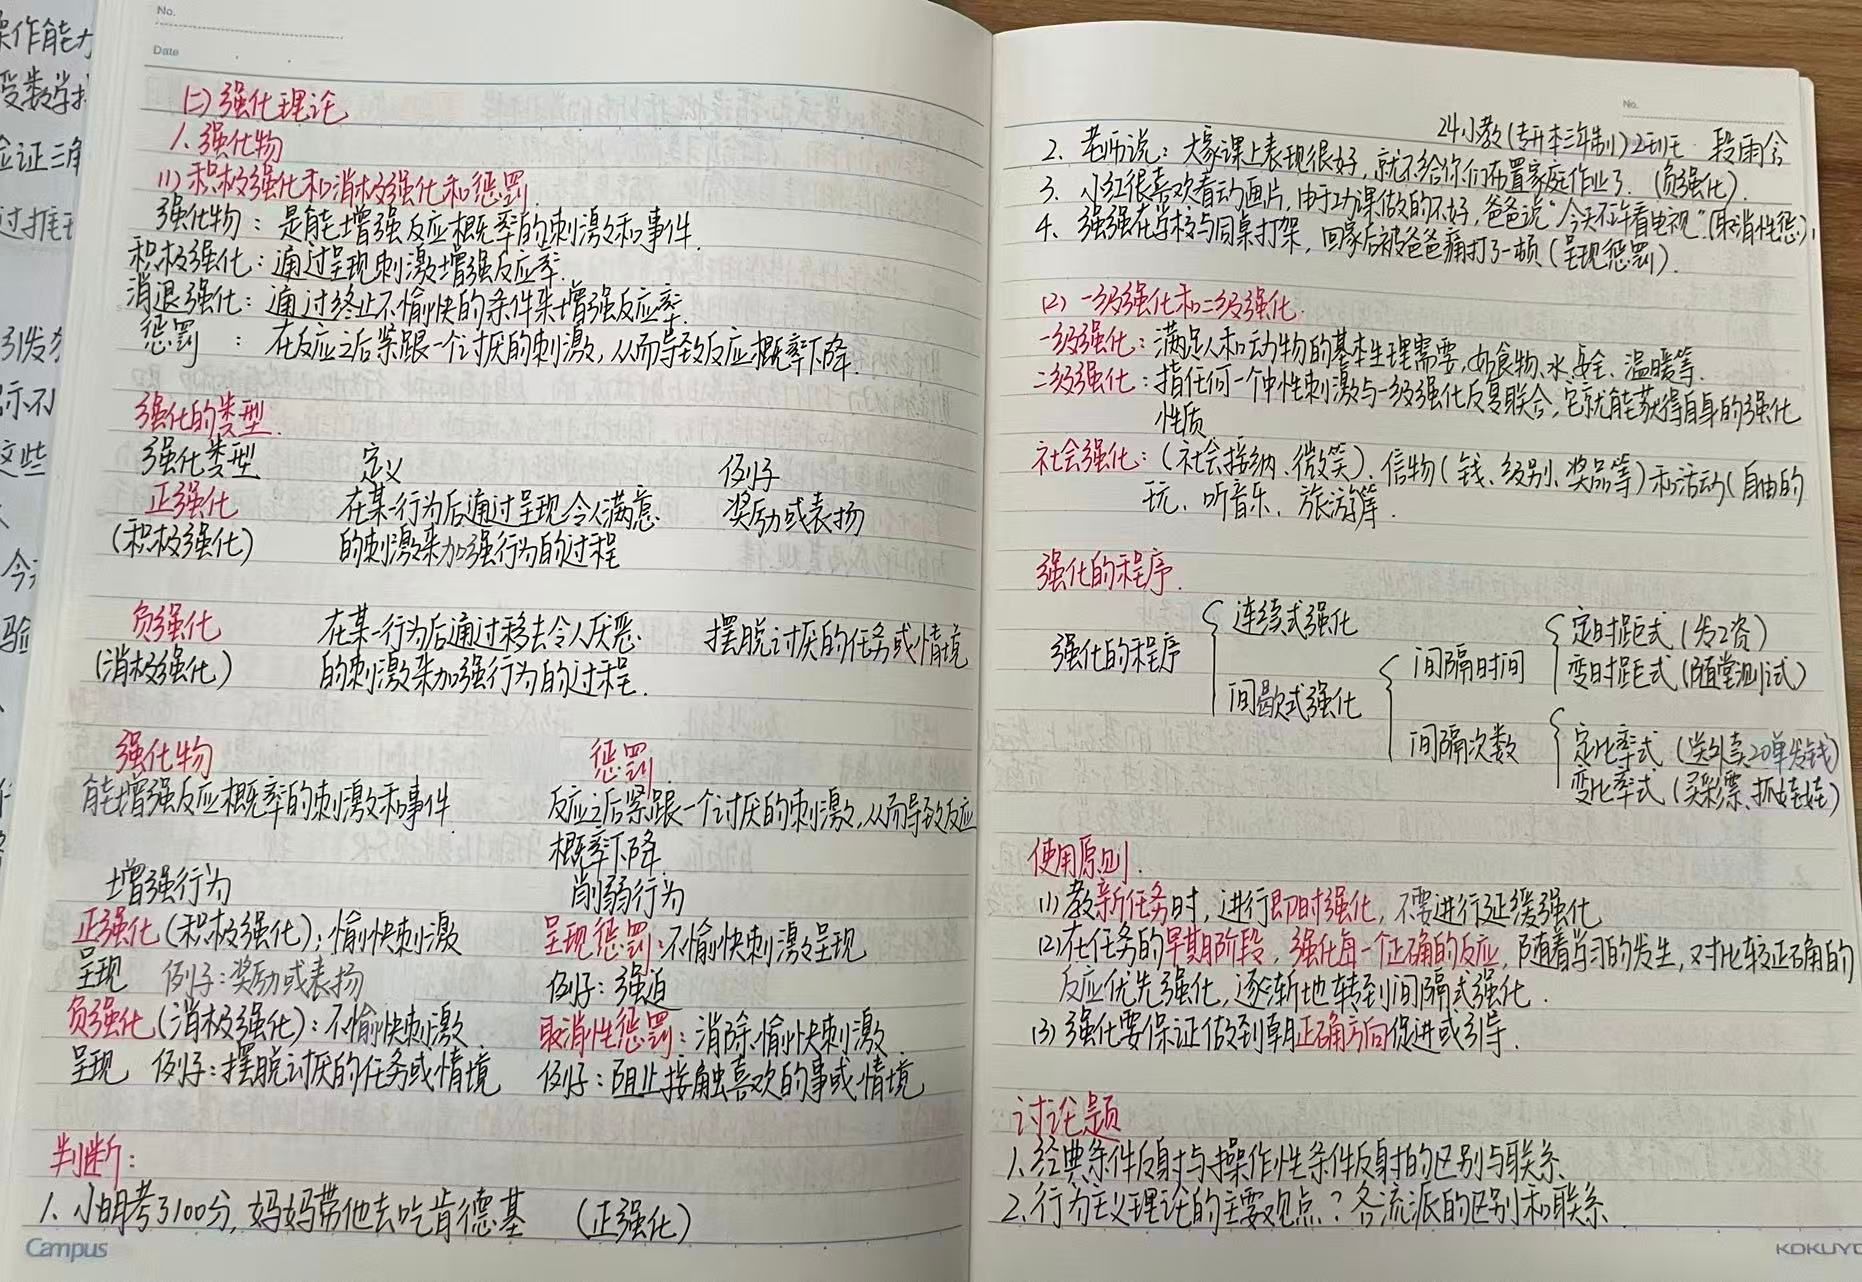 操作能力
验证三角
过推
引发
示不
这些
今
验
No.
Date
(二)强化理论
1.强化物
(1)积极强化和消极强化和惩罚.
强化物：是能增强反应概率的刺激和事件.
积极强化：通过呈现刺激增强反应率.
消退强化：通过终止不愉快的条件来增强反应率.
惩罚：在反应之后紧跟一个讨厌的刺激,从而导致反应概率下降.
强化的类型.
强化类型 定义 例子
正强化 在某一行为后通过呈现令人满意 奖励或表扬
(积极强化) 的刺激来加强行为的过程
负强化 在某一行为后通过移去令人厌恶 摆脱讨厌的任务或情境
(消极强化) 的刺激来加强行为的过程.
强化物 惩罚
能增强反应概率的刺激和事件. 反应之后紧跟一个讨厌的刺激,从而导致反应
概率下降.
增强行为 削弱行为
正强化(积极强化)：愉快刺激 呈现惩罚：不愉快刺激呈现
呈现 例子：奖励或表扬 例子：强迫
负强化(消极强化)：不愉快刺激 取消性惩罚：消除愉快刺激
呈现 例子：摆脱讨厌的任务或情境 例子：阻止接触喜欢的事或情境
判断：
1、小明考了100分,妈妈带他去吃肯德基 (正强化)
Campus
No.
24小教(专升本三年制)2班 段雨含
2、老师说：大家课上表现很好,就不给你们布置家庭作业了.(负强化).
3、小红很喜欢看动画片,由于功课做的不好,爸爸说“今天不许看电视”.(取消性惩)
4、强强在学校与同桌打架,回家后被爸爸痛打了一顿(呈现惩罚).
(2)一级强化和二级强化.
一级强化：满足人和动物的基本生理需要,如食物、水、安全、温暖等.
二级强化：指任何一个中性刺激与一级强化反复联合,它就能获得自身的强化
性质
社会强化：(社会接纳、微笑)、信物(钱、级别、奖品等)和活动(自由的
玩、听音乐、旅游等.
强化的程序.
强化的程序
连续式强化
间歇式强化
间隔时间
定时距式(发工资)
变时距式(随堂测试)
间隔次数
定比率式(送外卖20单发钱)
变比率式(买彩票、抓娃娃)
使用原则.
(1)教新任务时,进行即时强化,不要进行延缓强化
(2)在任务的早期阶段,强化每一个正确的反应,随着学习的发生,对比较正确的
反应优先强化,逐渐地转到间隔式强化.
(3)强化要保证做到朝正确方向促进或引导.
讨论题
1、经典条件反射与操作性条件反射的区别与联系.
2、行为主义理论的主要观点？各流派的区别和联系.
KOKUYO